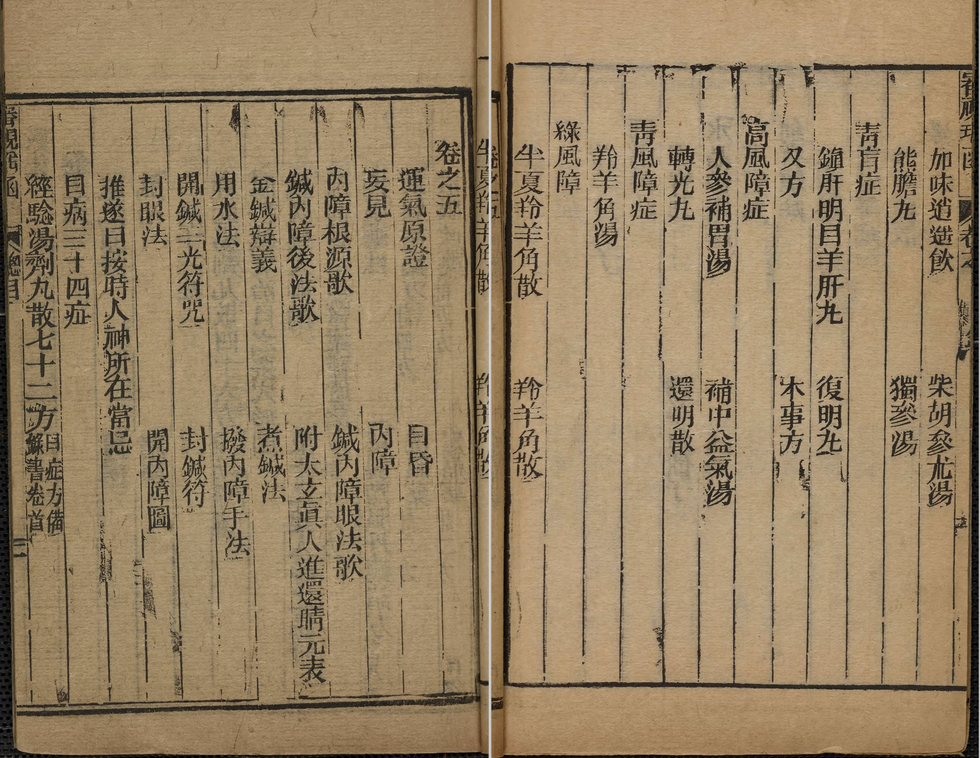 加味逍遥飲 柴胡參朮湯
熊膽九 獨參湯
青肓症
鎖肝明目羊肝九 復明九
又方 本事方
高風障症
人參補胃湯 補中益氣湯
轉光九 還明散
青風障症
羚羊角湯
綠風障
半夏羚羊角散 羚羊角散
卷之五
運氣原證 目昏
妄見 內障
內障根源歌 鍼內障眼法歌
鍼內障後法歌 附太玄真人進還睛元表
金鍼辯義 煮鍼法
用水法 撥內障手法
開鍼三光符咒 封鍼符
封眼法 開內障圖
推逐日按時人神所在當忌
目病三十四症
經驗湯劑九散七十二方
目症方備
錄書卷首
審視瑤函 總目